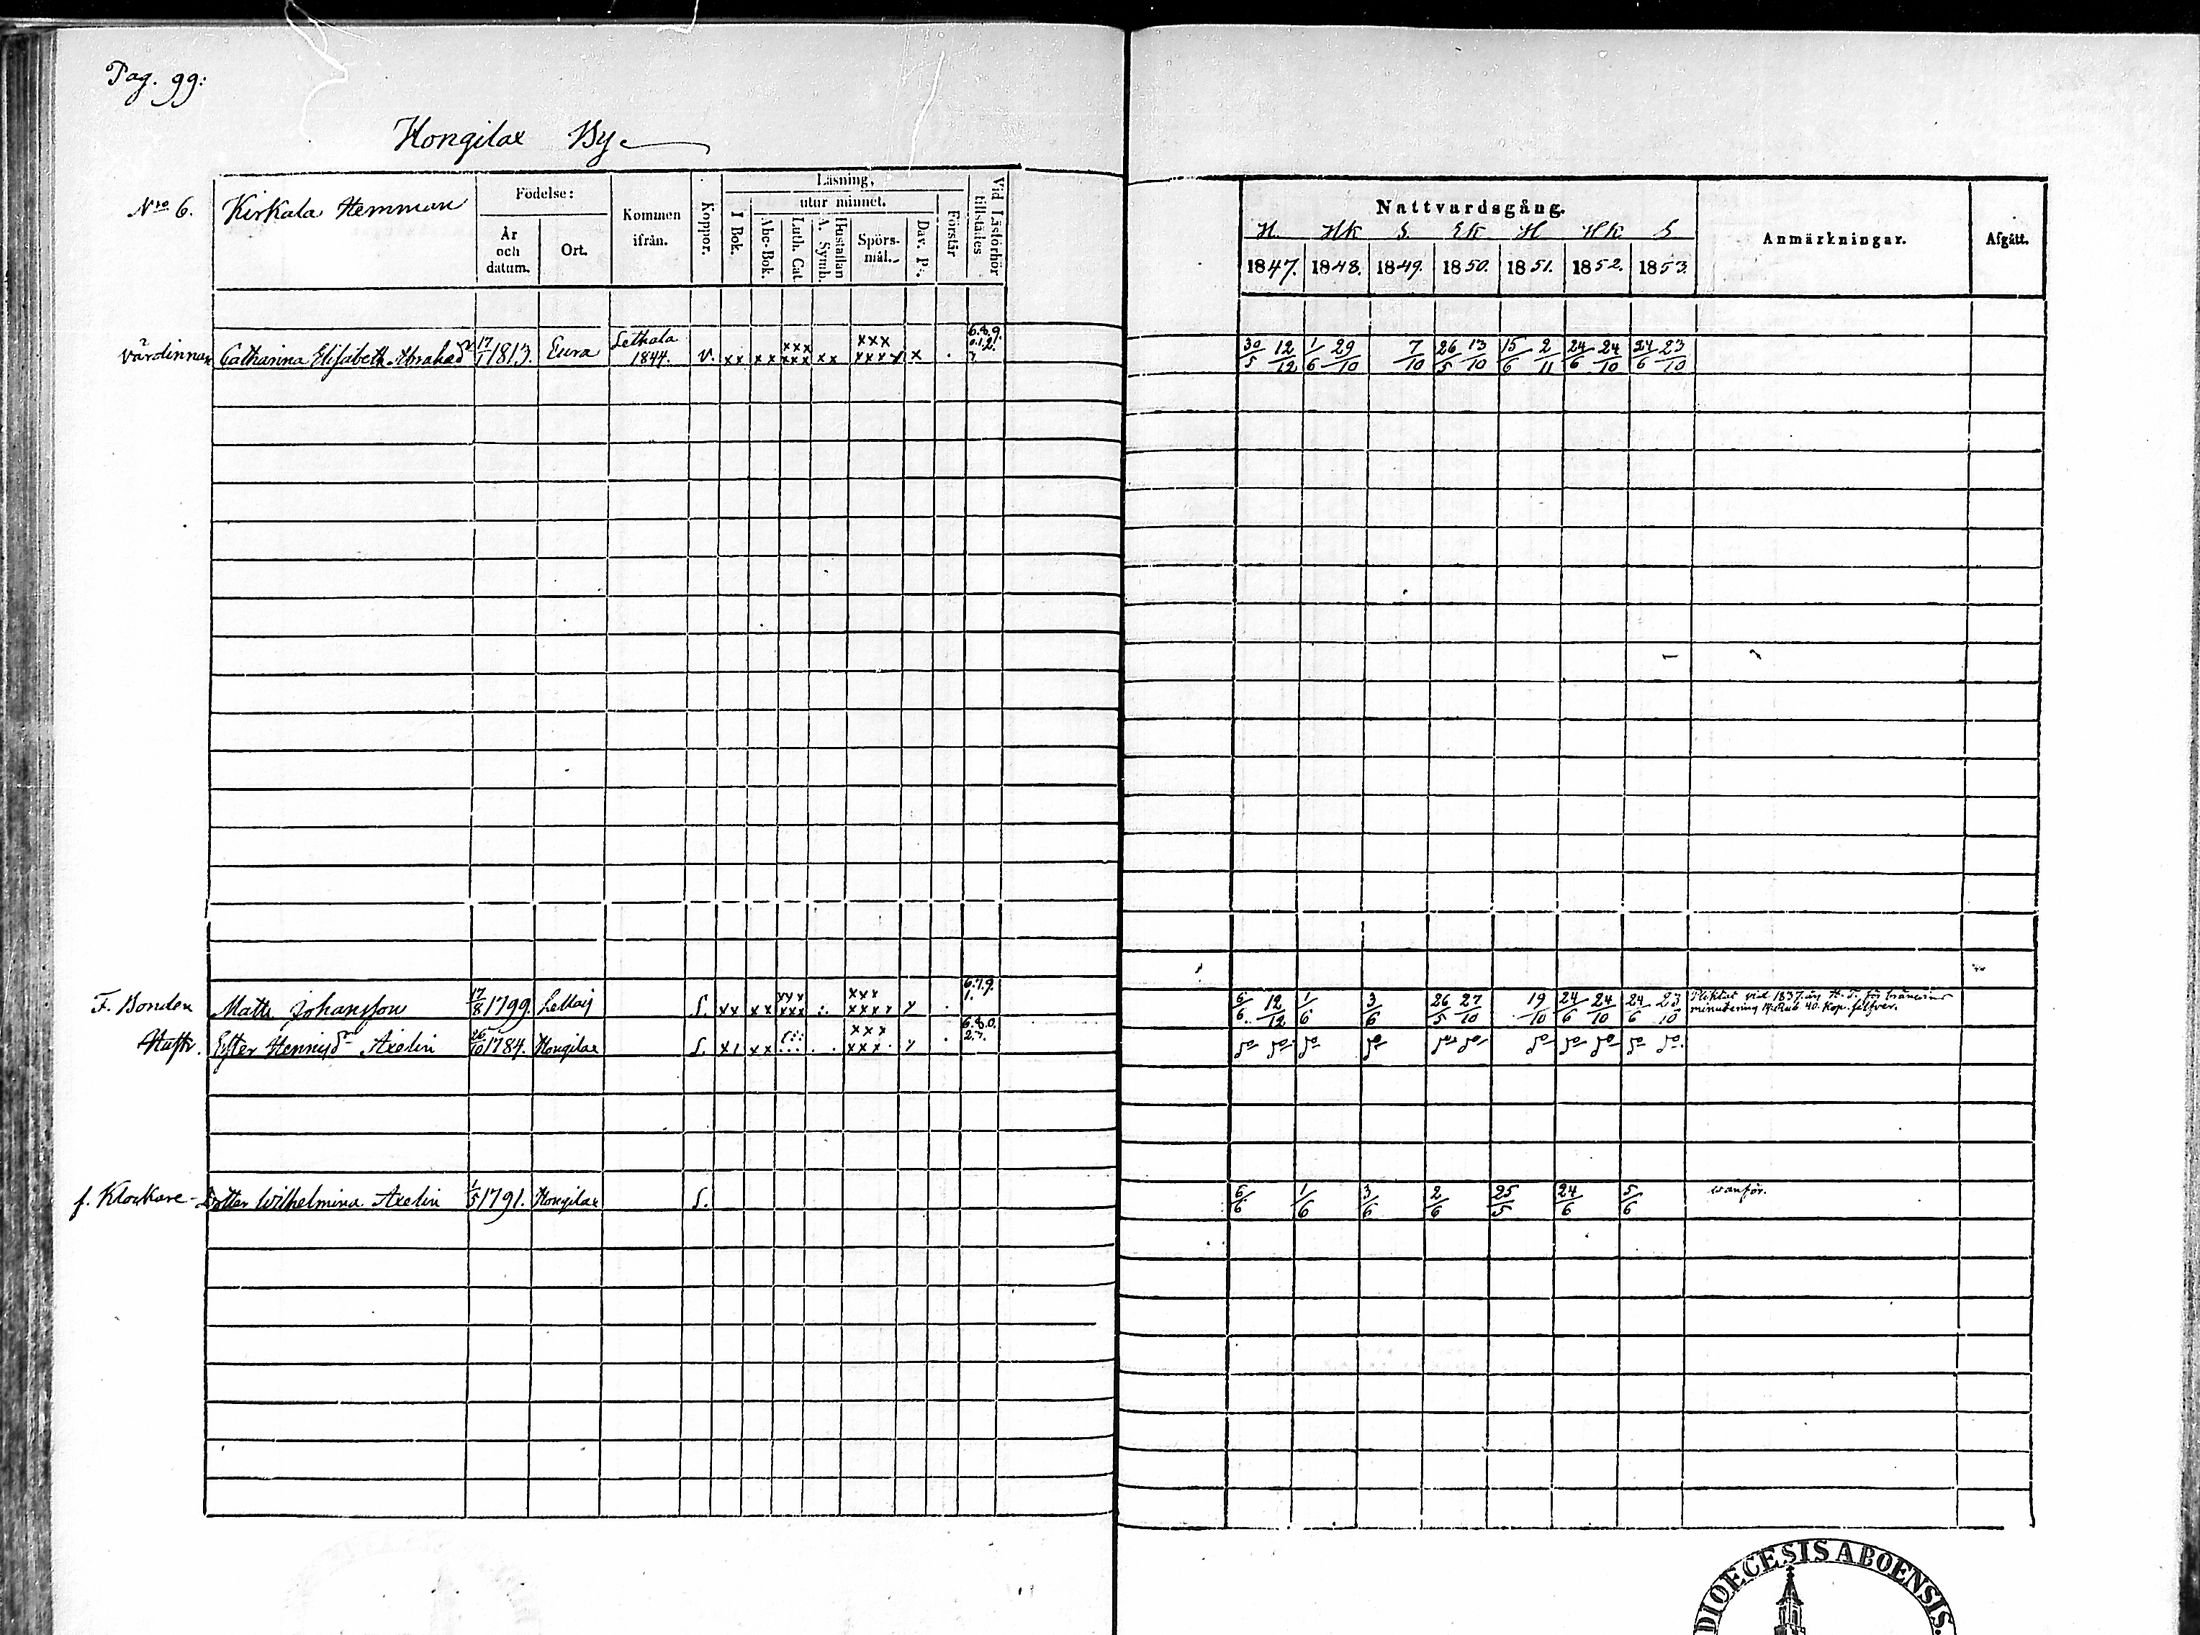 Pag. 99:
Hongilax By
No 6. Kirkala Hemman
Födelse:
År och datum.
Ort.
Kommen ifrån.
Koppor.
Läsning,
utur minnet.
I Bok.
Abc-Bok.
Luth. Cat.
A. Symb.
Hustaflan
Spörsmål.
Dav. Ps.
Förstår
Vid Läsförhör tillstädes
Nattvardsgång.
H. Hk S. Ek H Hk S
1847. 1848. 1849. 1850. 1851. 1852. 1853.
Anmärkningar.
Afgått.
värdinnan Catharina Elisabeth Abrahad 17/1 1813. Eura Lethala 1844. v. xx xx xxx xxx xx xxx xxxx x . 6.8.9. 0.1.2. 3 30/5 12/12 1/6 29/10 7/10 26/5 13/10 15/6 2/11 24/6 24/10 24/6 23/10
F. Bonden Matts Johansson 17/8 1799. S. xx xx xxx xxx xxx xxxx x . 6.7.9. 1. 6/6 12/12 1/6 3/6 26/5 27/10 19/10 24/6 24/10 24/6 23/10 Pliktat vid 1837. för
minutering 40. Kop. silfver.
Hustr. Ester Axelin 26/10 1784. Hongilax S. xx xx xxx xxx x . 6.8.0. 2.3.
f. Klockare-Dotter Wilhelmina Axelin 1/5 1791. Hongilax S. 6/6 1/6 3/6 2/6 25/5 24/6 5/6 vanför.
DIOECESIS ABOENSIS.